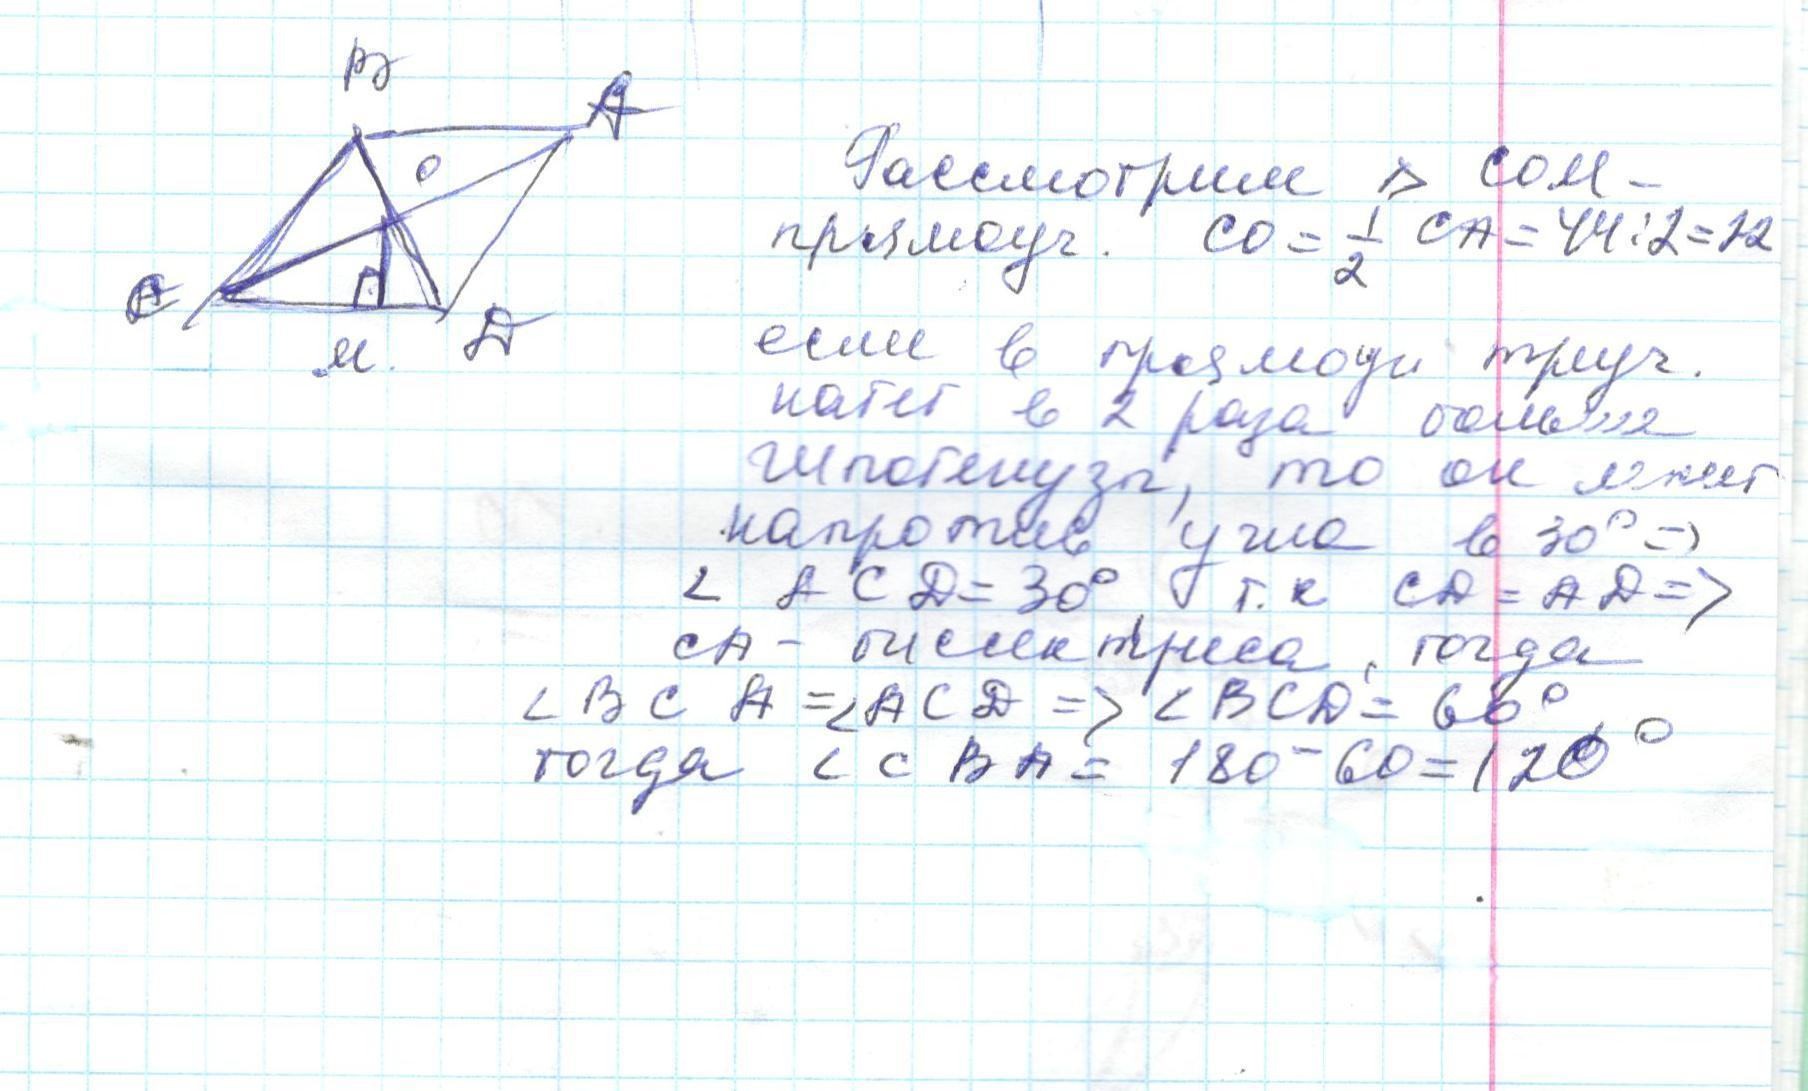 B
A
O
C
M.
D
Рассмотрим ▷ COM –
прямоуг. CO = 1/2 CA = 44 : 2 = 22
если в прямоуг. треуг.
катет в 2 раза больше
гипотенузы, то он лежит
напротив угла в 30° =>
< ACD = 30°, т.к CD = AD =>
CA – биссектриса, тогда
< BCA = < ACD => < BCD = 60°
тогда < CBA = 180 – 60 = 120°